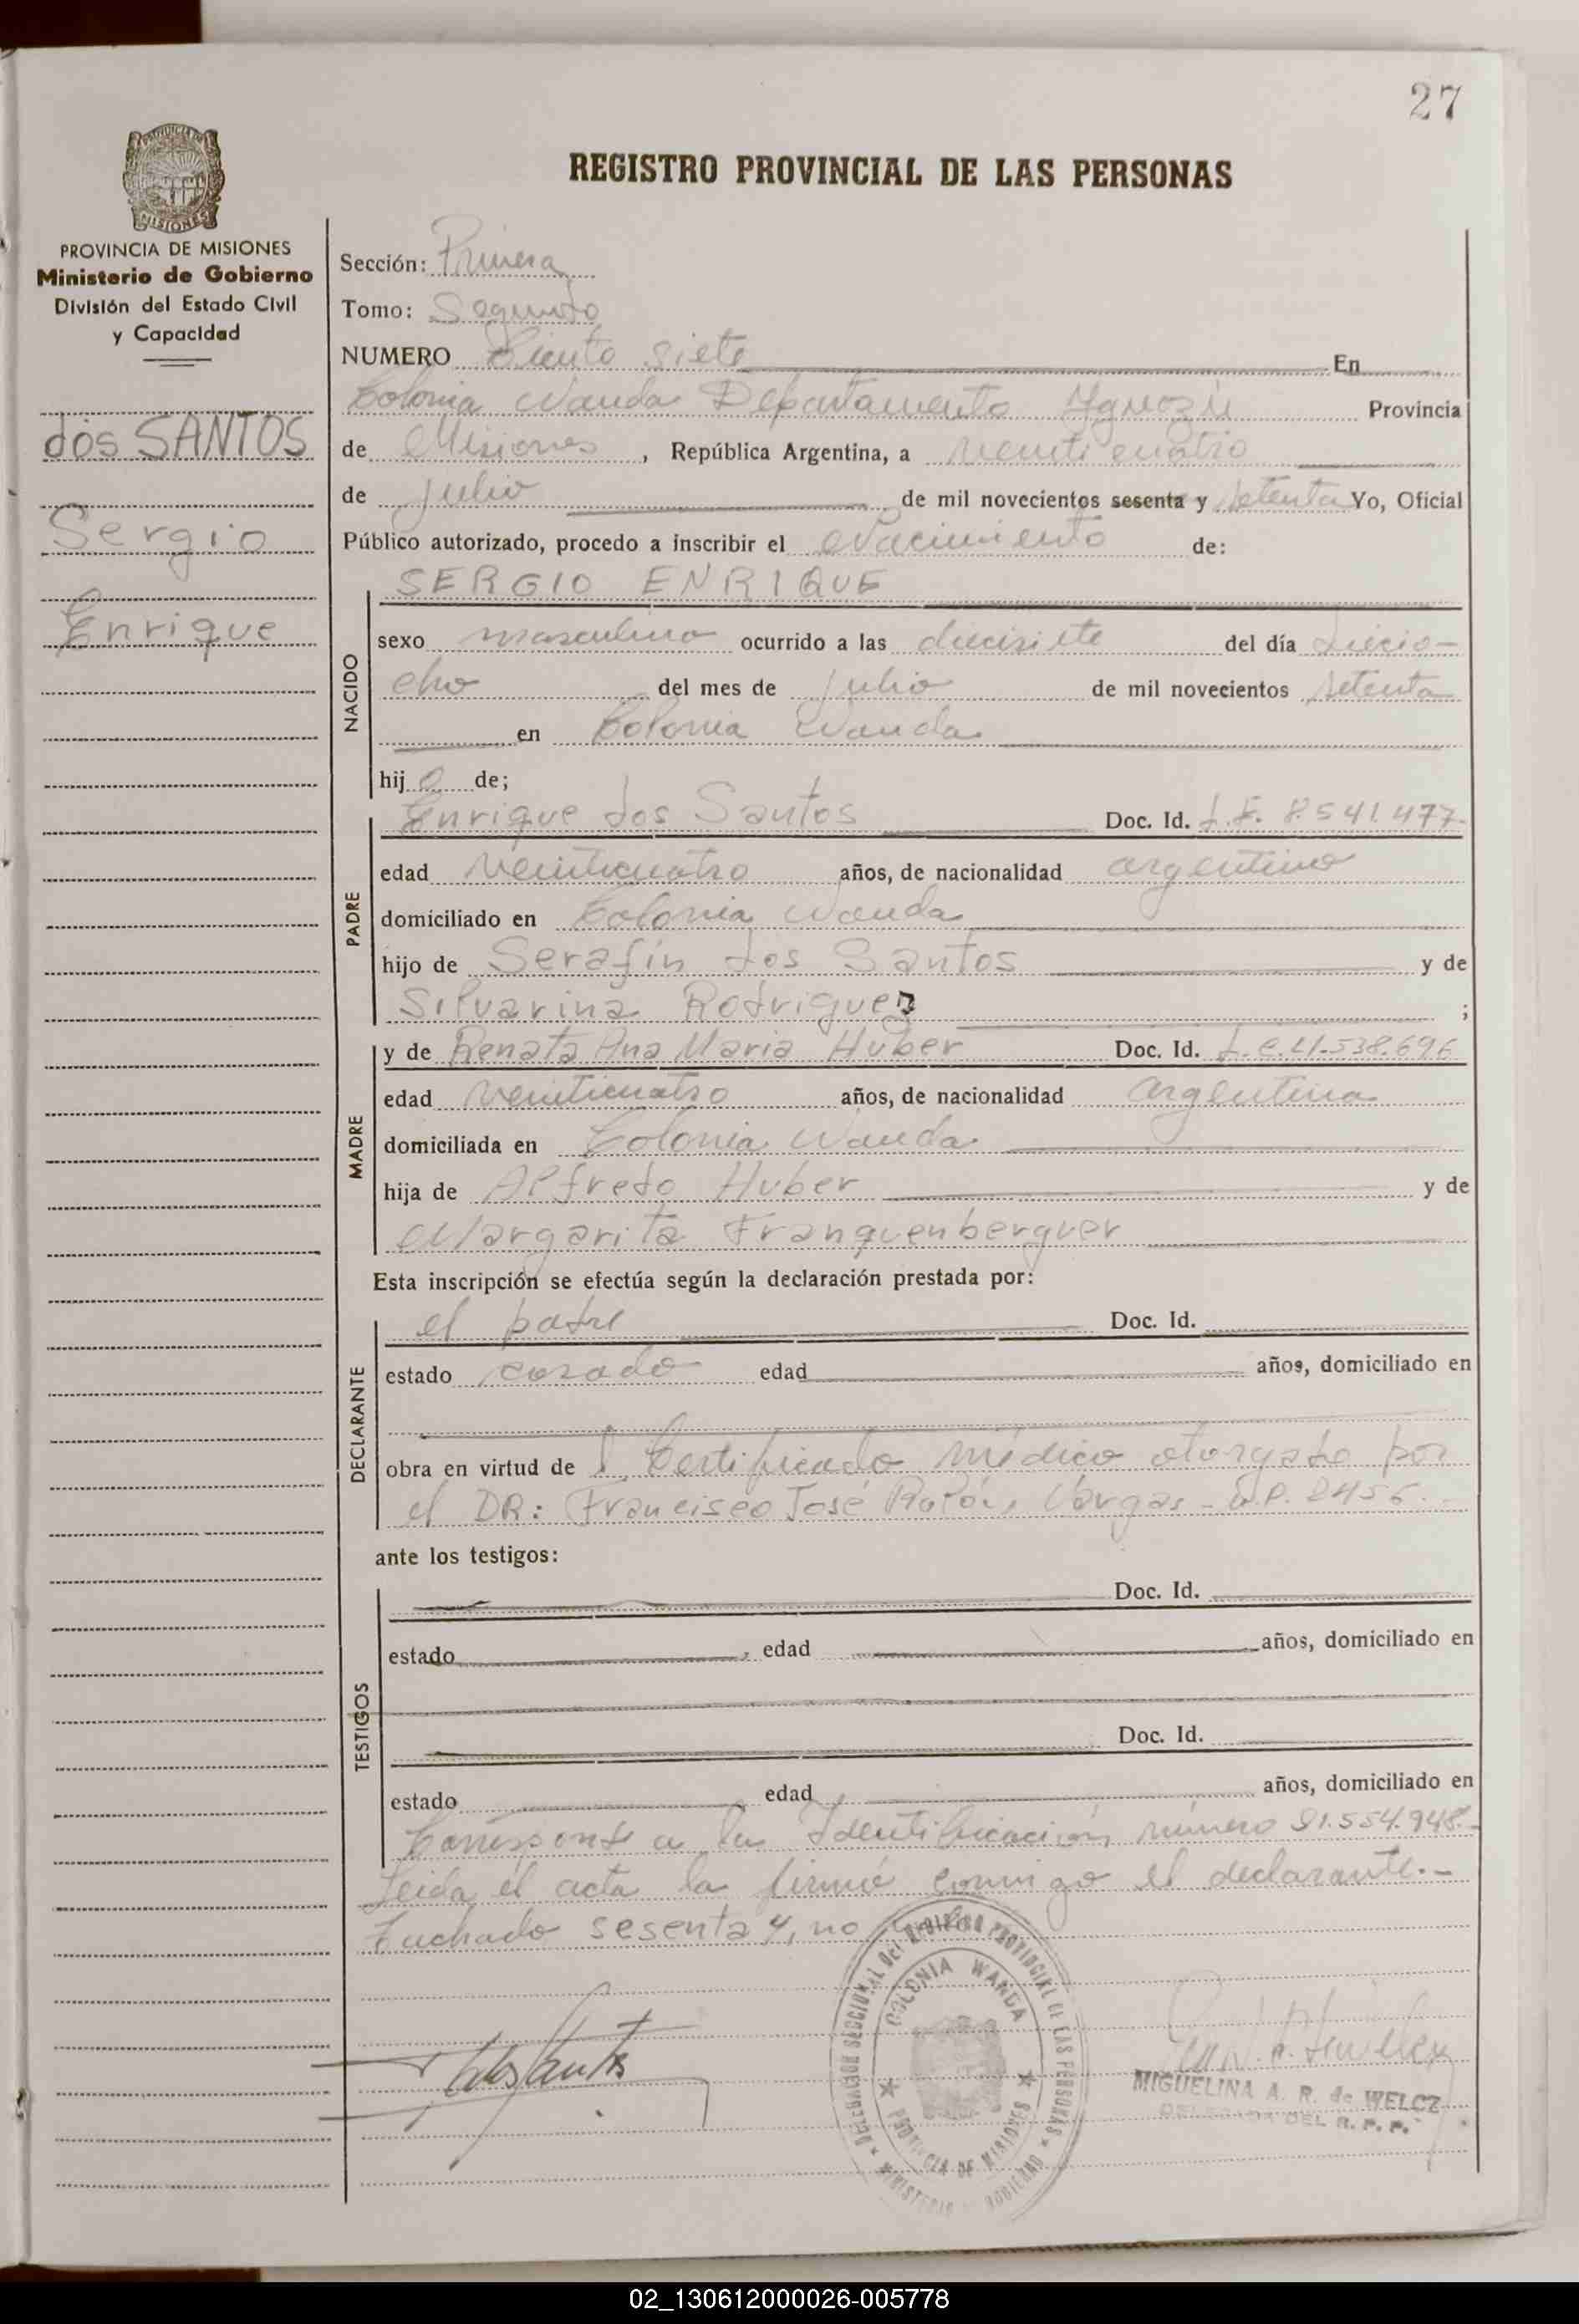 27
PROVINCIA DE MISIONES
Ministerio de Gobierno
División del Estado Civil
y Capacidad
dos SANTOS
Sergio
Enrique
REGISTRO PROVINCIAL DE LAS PERSONAS
Sección: Primera
Tomo: Segundo
NUMERO Ciento siete En
Colonia Wanda Departamento Iguazú Provincia
de Misiones, República Argentina, a veinticuatro
de Julio de mil novecientos sesenta y setenta Yo, Oficial
Público autorizado, procedo a inscribir el Nacimiento de:
SERGIO ENRIQUE
NACIDO
sexo masculino ocurrido a las diecisiete del día diecio-
cho del mes de Julio de mil novecientos setenta
en Colonia Wanda
hijo de;
PADRE
Enrique dos Santos Doc. Id. L.E. 8.541.477
edad veinticuatro años, de nacionalidad argentino
domiciliado en Colonia Wanda
hijo de Serafín dos Santos y de
Silvarina Rodriguez ;
MADRE
y de Renata Ana Maria Huber Doc. Id. L.C. 4.538.696
edad veinticuatro años, de nacionalidad argentina
domiciliada en Colonia Wanda
hija de Alfredo Huber y de
Margarita Franquenberguer
Esta inscripción se efectúa según la declaración prestada por:
DECLARANTE
el padre Doc. Id.
estado casado edad años, domiciliado en
obra en virtud de Certificado médico otorgado por
el DR: Francisco José Vargas - 2456.-
ante los testigos:
TESTIGOS
Doc. Id.
estado , edad años, domiciliado en
Doc. Id.
estado edad años, domiciliado en
Corresponde a la Identificación número 21.554.948.-
Leida el acta la firmó conmigo el declarante.-
Tuchado sesenta y, no
DELEGACION SECCIONAL DEL REGISTRO PROVINCIAL DE LAS PERSONAS
COLONIA WANDA
PROVINCIA DE MISIONES
MINISTERIO GOBIERNO
dos Santos
MIGUELINA A. R. de WELCZ
DELEGADA DEL R. P. P.
02_130612000026-005778